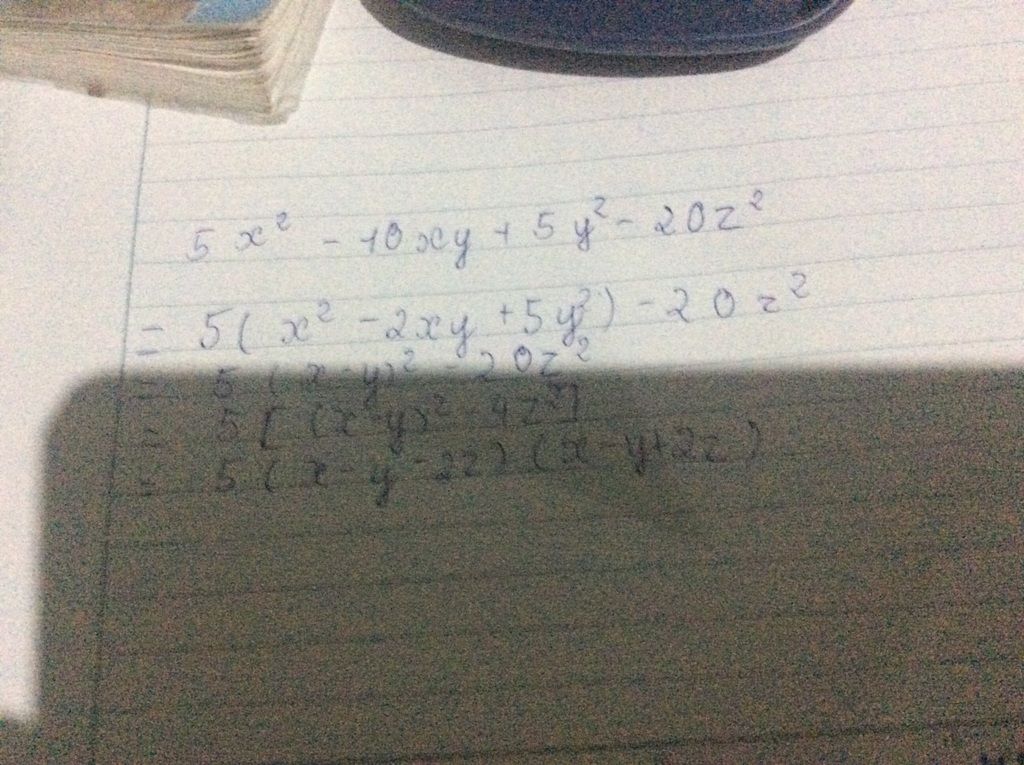 5x² - 10xy + 5y² - 20z²
= 5(x² - 2xy + 5y²) - 20z²
= 5(x-y)² - 20z²
= 5[(x-y)² - 4z²]
= 5(x-y-2z)(x-y+2z)